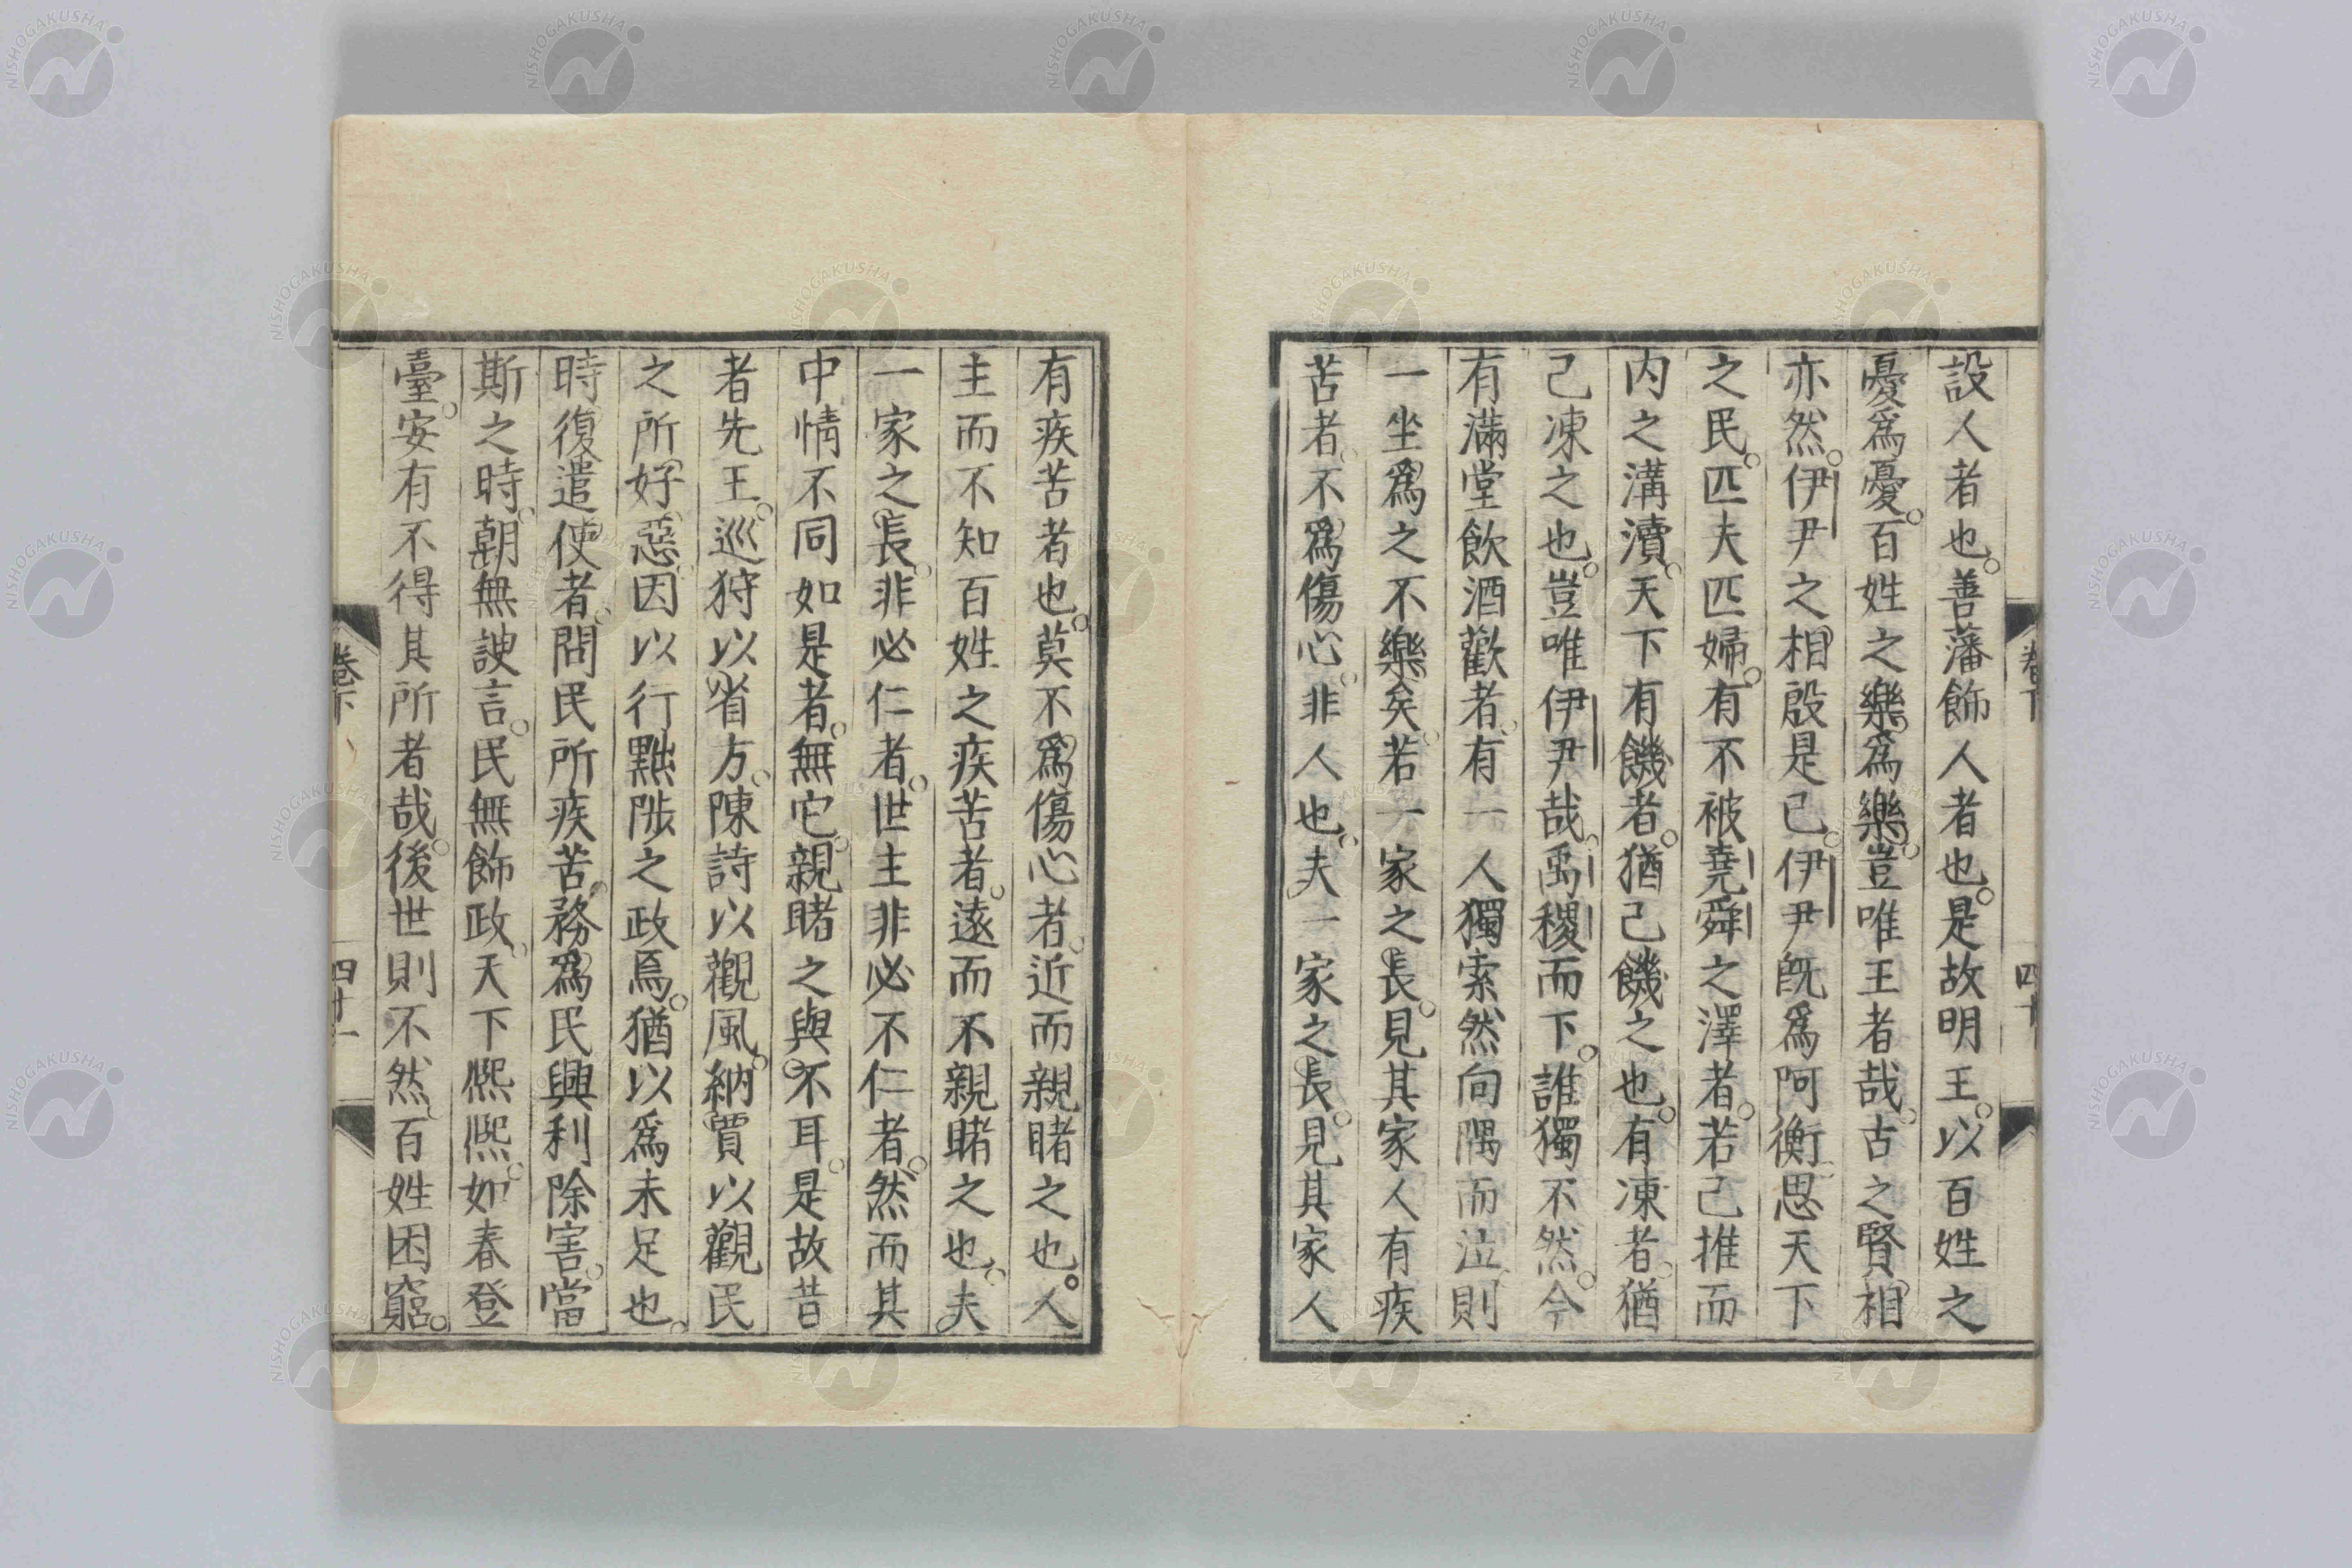 設人者也。善藩飾人者也。是故明王。以百姓之
憂爲憂。百姓之樂。爲樂。豈唯王者哉。古之賢相
亦然。伊尹之相殷是已。伊尹旣爲阿衡。思天下
之民。匹夫匹婦。有不被堯舜之澤者。若己推而
內之溝瀆。天下有饑者。猶己饑之也。有凍者。猶
己凍之也。豈唯伊尹哉。禹稷而下。誰獨不然。今
有滿堂飲酒歡者。有一人獨索然向隅而泣。則
一坐爲之不樂矣。若一家之長。見其家人有疾
苦者。不爲傷心。非人也。夫一家之長。見其家人
有疾苦者也。莫不爲傷心者。近而親睹之也。人
主而不知百姓之疾苦者。遠而不親睹之也。夫
一家之長。非必仁者。世主非必不仁者。然而其
中情不同如是者。無它。親睹之與不耳。是故昔
者先王。巡狩以省方。陳詩以觀風。納賈以觀民
之所好惡。因以行黜陟之政焉。猶以爲未足也。
時復遣使者。問民所疾苦。務爲民興利除害。當
斯之時。朝無諛言。民無飾政。天下熙熙。如春登
臺。安有不得其所者哉。後世則不然。百姓困窮。
卷下
四十
卷下
四十一
NISHOGAKUSHA